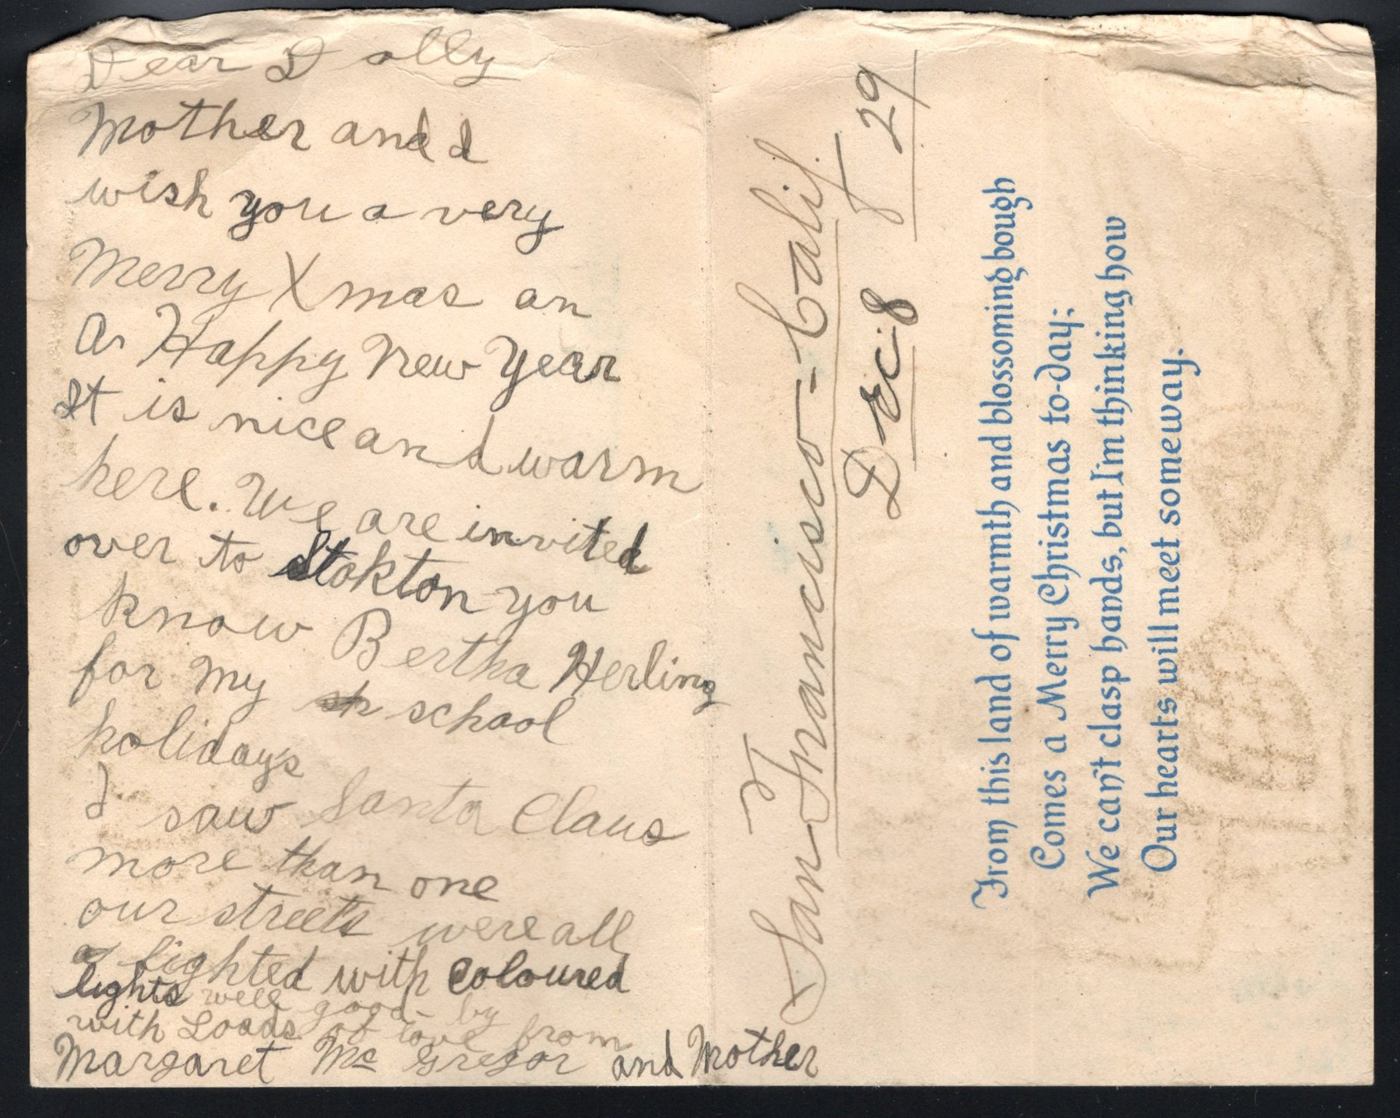 Dear Dolly
Mother and I
wish you a very
Merry Xmas an
A Happy New Year
It is nice and warm
here. We are invited
over to Stokton you
know Bertha Herling
for my school
holidays
I saw Santa Claus
more than one
our streets were all
lighted with coloured
lights well good-by
with Loads of love from
Margaret Mc Gregor and Mother
San Francisco-Calif
Dec. 8 29
From this land of warmth and blossoming bough
Comes a Merry Christmas to-day;
We can't clasp hands, but I'm thinking how
Our hearts will meet someway.